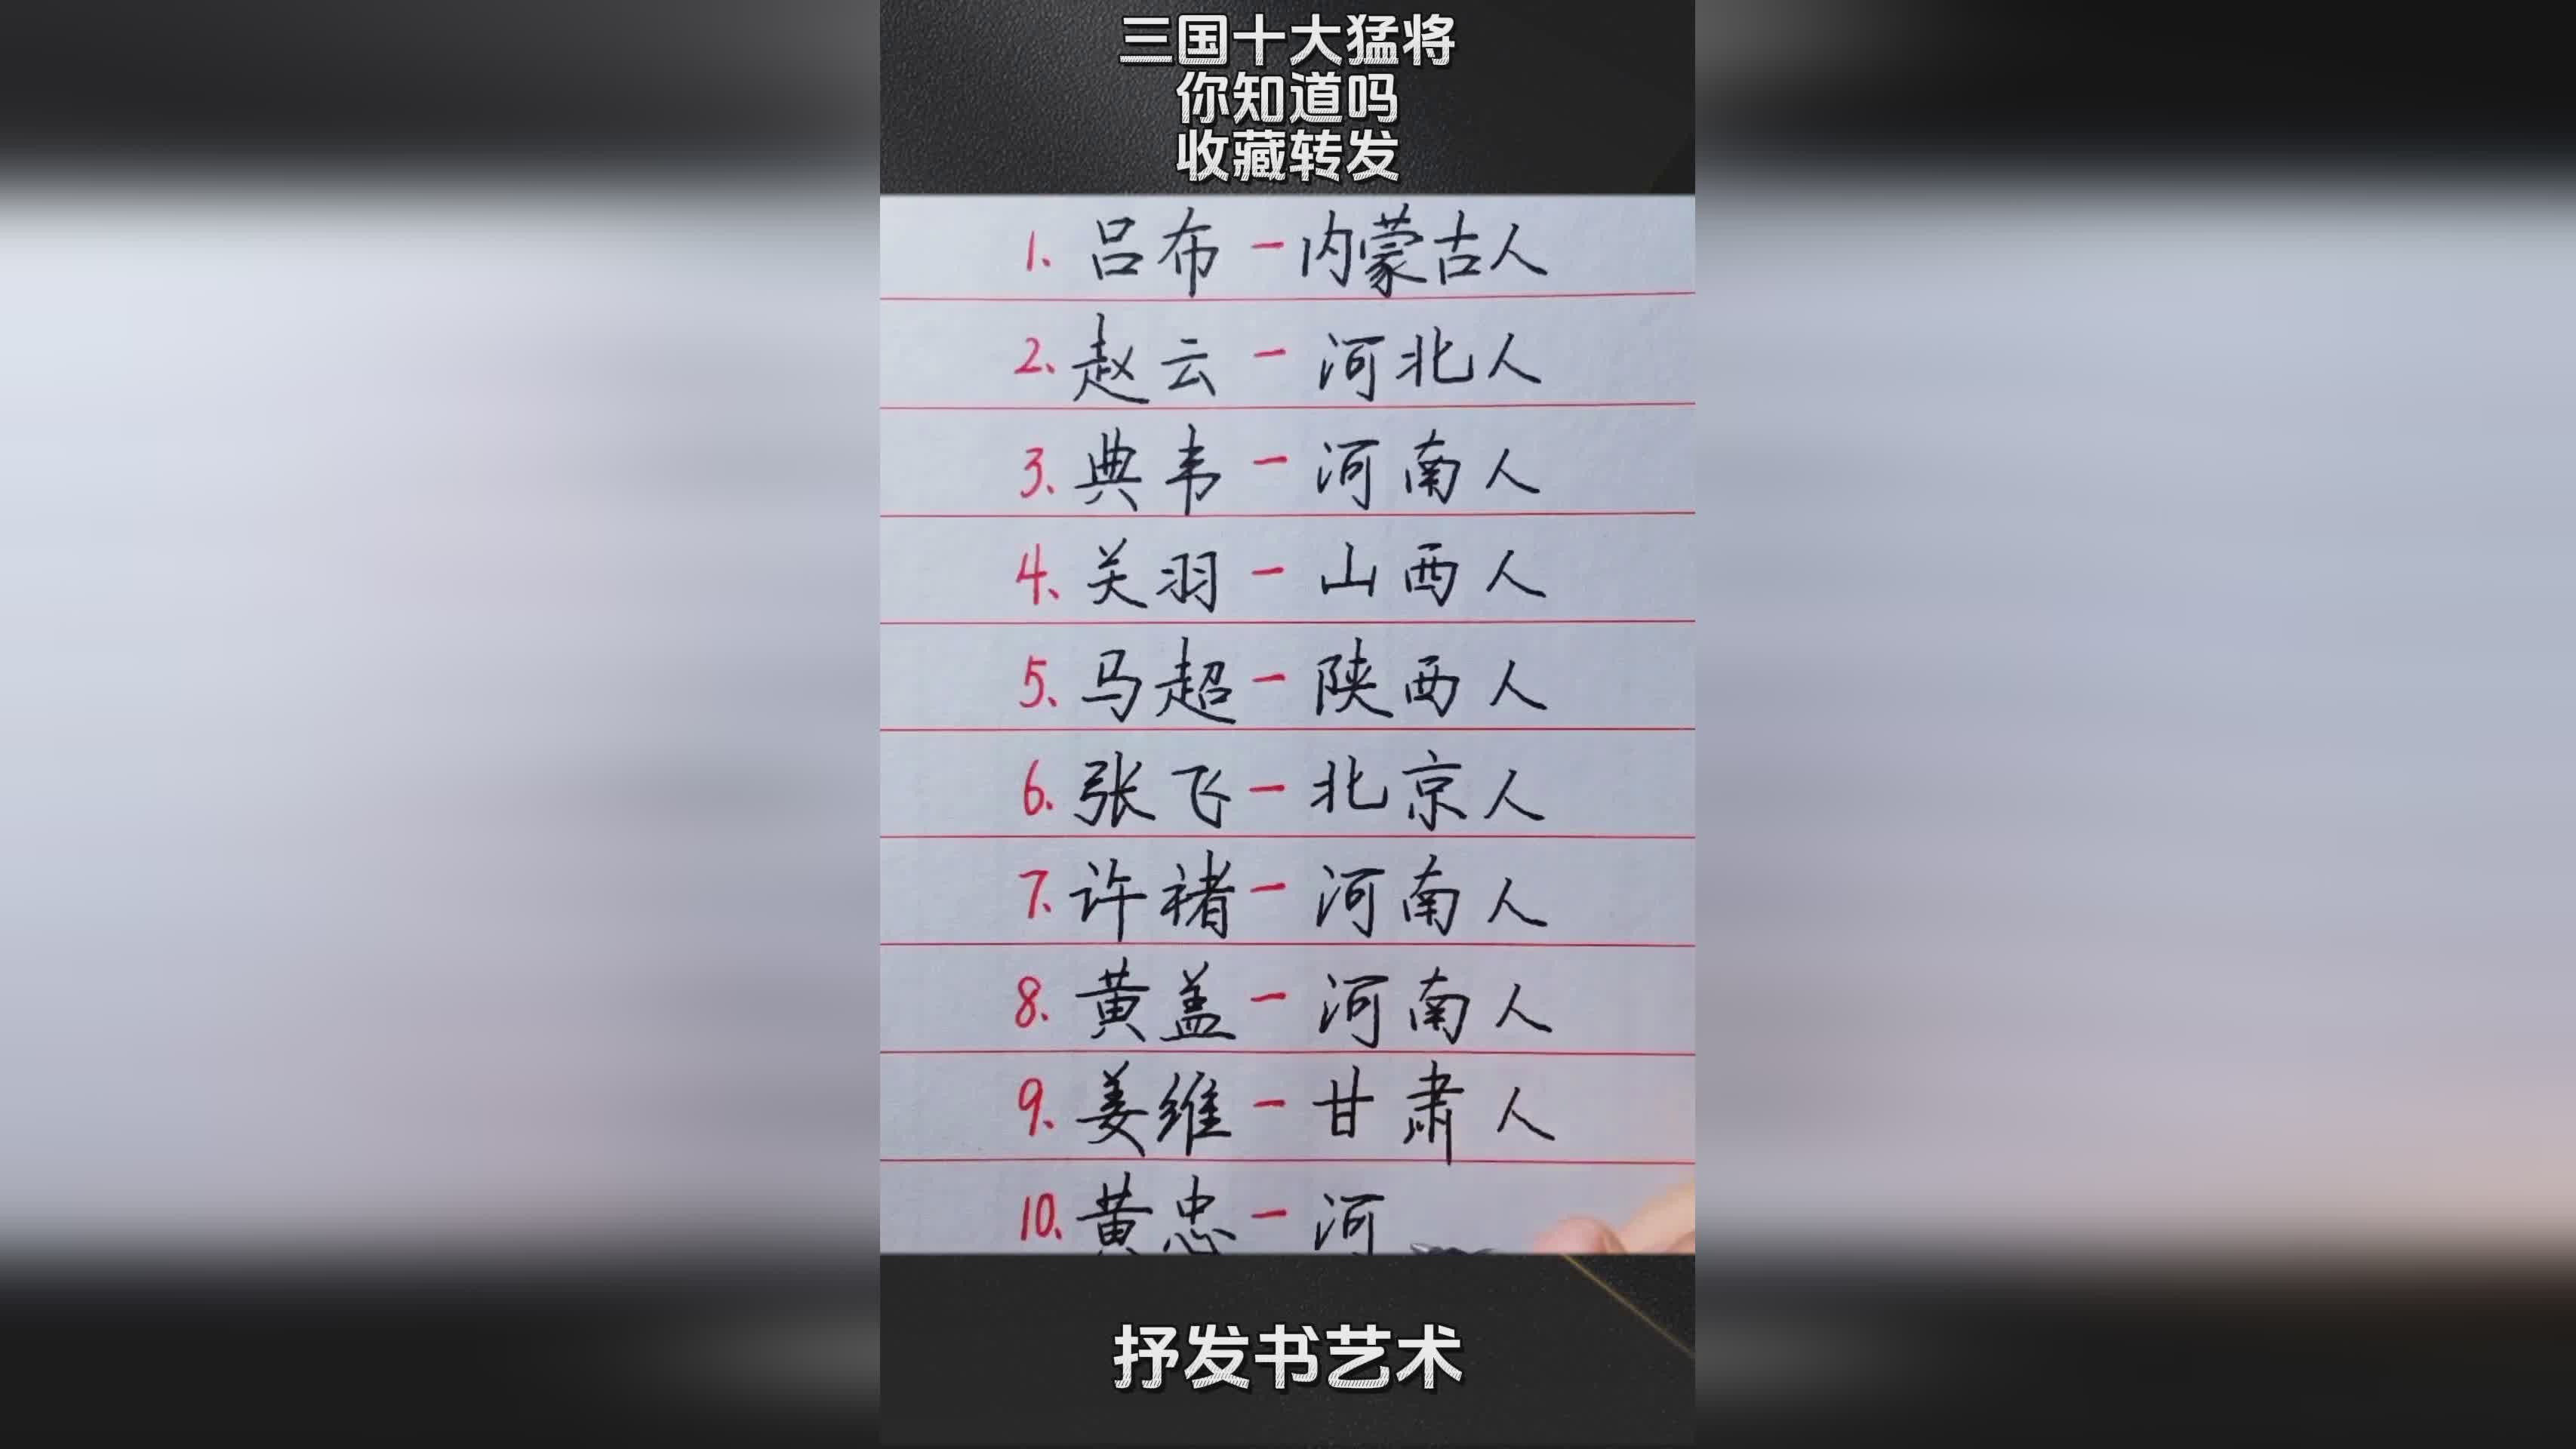 三国十大猛将
你知道吗
收藏转发
1、吕布-内蒙古人
2、赵云-河北人
3、典韦-河南人
4、关羽-山西人
5、马超-陕西人
6、张飞-北京人
7、许褚-河南人
8、黄盖-河南人
9、姜维-甘肃人
10、黄忠-河
抒发书艺术